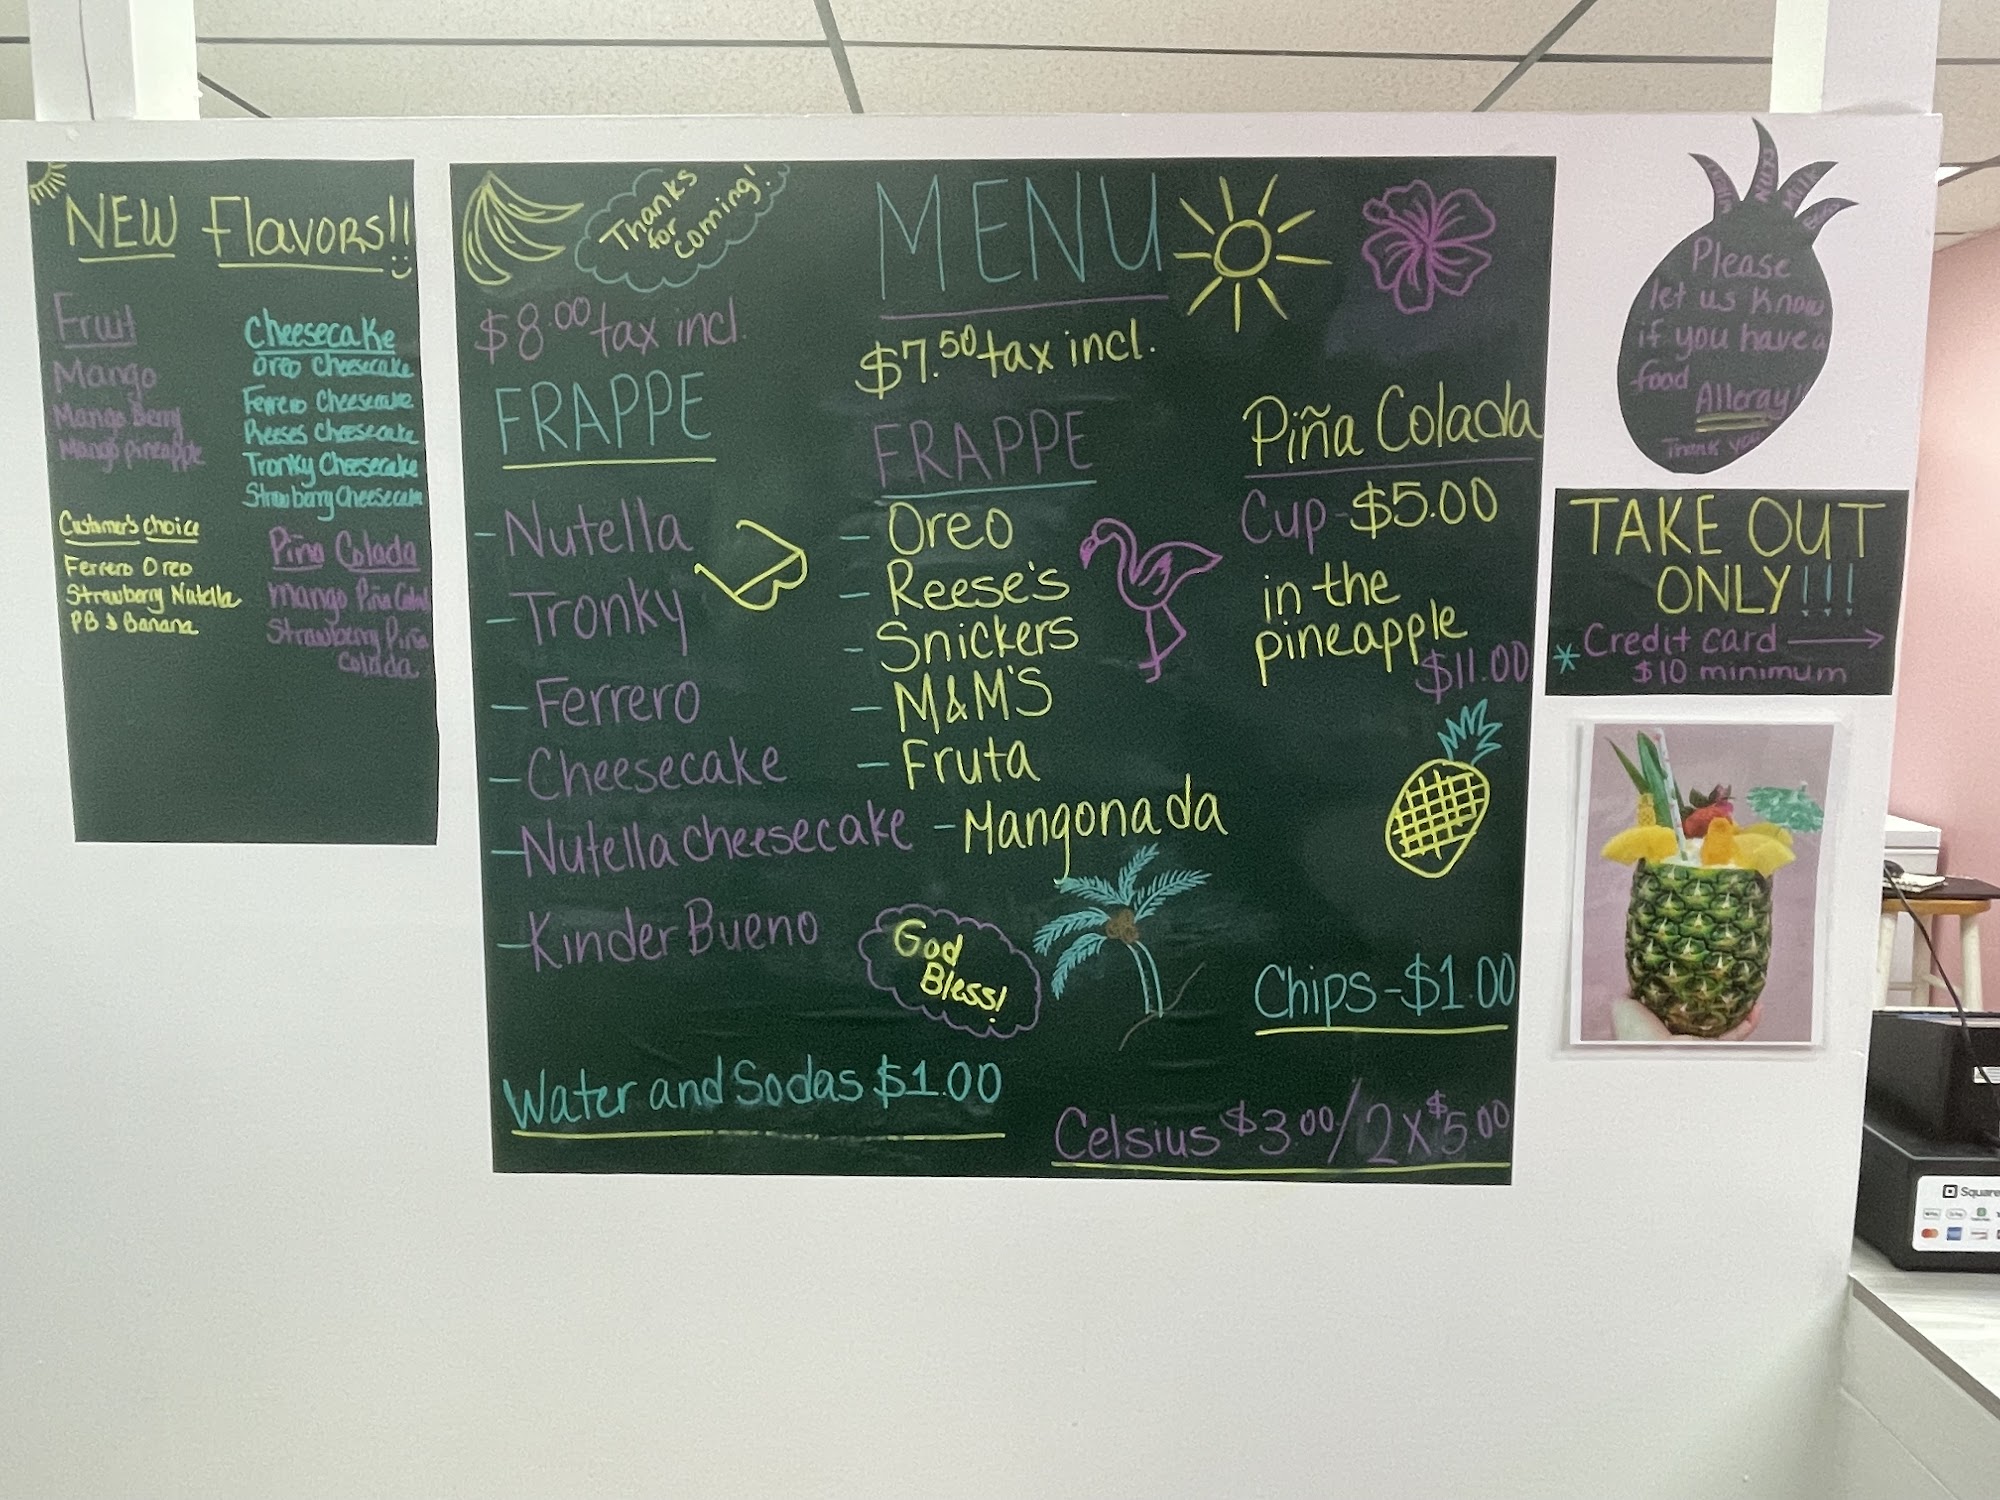 NEW Flavors!!
Fruit
Mango
Mango Berry
Mango pineapple
Customer's choice
Ferrero Oreo
Strawberry Nutella
PB & Banana
Cheesecake
Oreo Cheesecake
Ferrero Cheesecake
Reeses Cheesecake
Tronky Cheesecake
Strawberry Cheesecake
Piña Colada
Mango Piña Colada
Strawberry Piña
Colada
Thanks
for
coming!
MENU
$8.00 tax incl.
FRAPPE
- Nutella
- Tronky
- Ferrero
- Cheesecake
- Nutella cheesecake
- Kinder Bueno
$7.50 tax incl.
FRAPPE
- Oreo
- Reese's
- Snickers
- M&M'S
- Fruta
- Mangonada
God
Bless!
Piña Colada
Cup - $5.00
in the
pineapple
$11.00
Chips - $1.00
Water and Sodas $1.00
Celsius $3.00/2 x $5.00
Nuts
Milk
Please
let us know
if you have a
food
Allergy!
Thank you
TAKE OUT
ONLY!!!
* Credit card →
$10 minimum
Square